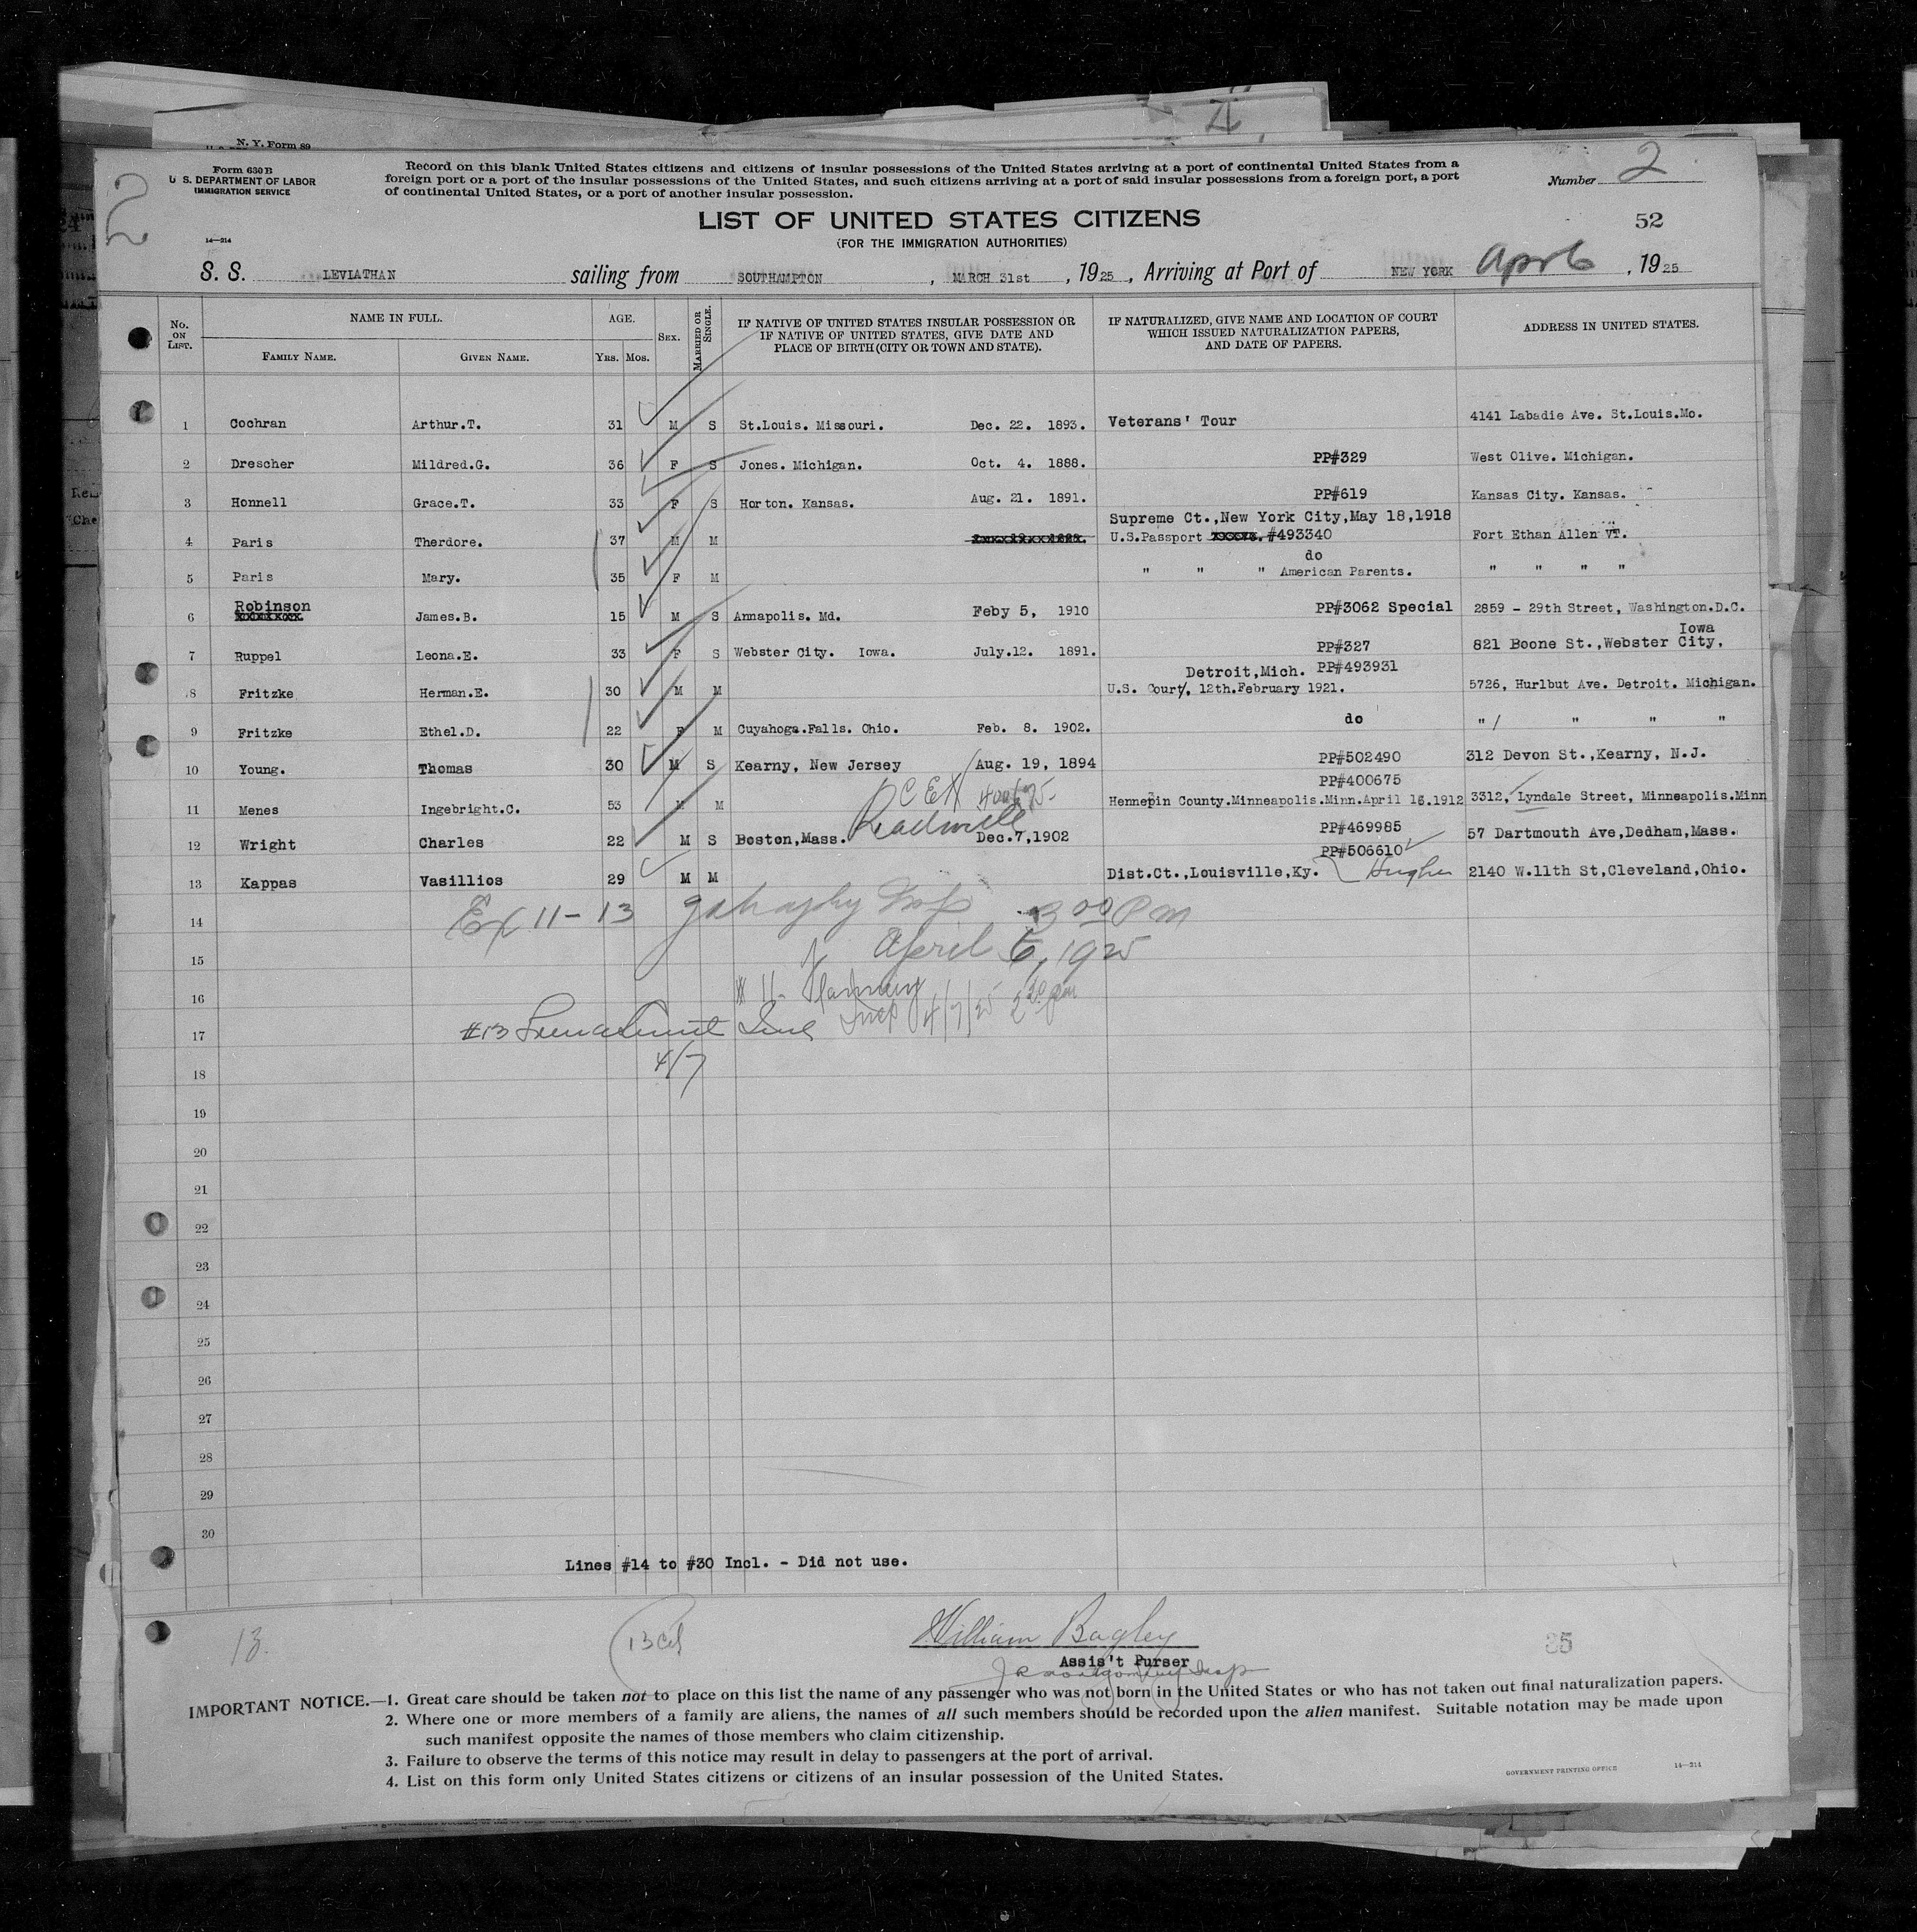 N. Y. Form 89
Form 630 B
U. S. DEPARTMENT OF LABOR
IMMIGRATION SERVICE
2
Record on this blank United States citizens and citizens of insular possessions of the United States arriving at a port of continental United States from a
foreign port or a port of the insular possessions of the United States, and such citizens arriving at a port of said insular possessions from a foreign port, a port
of continental United States, or a port of another insular possession.
Number 2
LIST OF UNITED STATES CITIZENS
52
(FOR THE IMMIGRATION AUTHORITIES)
14—214
S. S. LEVIATHAN sailing from SOUTHAMPTON, MARCH 31st, 1925, Arriving at Port of NEW YORK Apr 6, 1925
No. ON LIST. NAME IN FULL. FAMILY NAME. GIVEN NAME. AGE. Yrs. Mos. SEX. MARRIED OR SINGLE. IF NATIVE OF UNITED STATES INSULAR POSSESSION OR IF NATIVE OF UNITED STATES, GIVE DATE AND PLACE OF BIRTH (CITY OR TOWN AND STATE). IF NATURALIZED, GIVE NAME AND LOCATION OF COURT WHICH ISSUED NATURALIZATION PAPERS, AND DATE OF PAPERS. ADDRESS IN UNITED STATES.
1 Cochran Arthur.T. 31 M S St.Louis. Missouri. Dec. 22. 1893. Veterans' Tour 4141 Labadie Ave. St.Louis.Mo.
2 Drescher Mildred.G. 36 F S Jones. Michigan. Oct. 4. 1888. PP#329 West Olive. Michigan.
3 Honnell Grace.T. 33 F S Horton. Kansas. Aug. 21. 1891. PP#619 Kansas City. Kansas.
Supreme Ct.,New York City,May 18,1918
4 Paris Therdore. 37 M M U.S.Passport #493340 Fort Ethan Allen VT.
do
5 Paris Mary. 35 F M " " " American Parents. " " " "
Robinson
6 James.B. 15 M S Annapolis. Md. Feby 5, 1910 PP#3062 Special 2859 - 29th Street, Washington.D.C.
Iowa
7 Ruppel Leona.E. 33 F S Webster City. Iowa. July.12. 1891. PP#327 821 Boone St.,Webster City,
Detroit,Mich. PP#493931
8 Fritzke Herman.E. 30 M M U.S. Court, 12th.February 1921. 5726, Hurlbut Ave. Detroit. Michigan.
9 Fritzke Ethel.D. 22 F M Cuyahoga.Falls. Ohio. Feb. 8. 1902. do " " " "
10 Young. Thomas 30 M S Kearny, New Jersey Aug. 19, 1894 PP#502490 312 Devon St.,Kearny, N.J.
PP#400675
11 Menes Ingebright.C. 53 M M Hennepin County.Minneapolis.Minn.April 16.1912 3312, Lyndale Street, Minneapolis.Minn
PP#469985
12 Wright Charles 22 M S Boston,Mass. Dec.7,1902 57 Dartmouth Ave,Dedham,Mass.
PP#506610
13 Kappas Vasillios 29 M M Dist.Ct.,Louisville,Ky. Hughes 2140 W.11th St,Cleveland,Ohio.
14 Ex 11-13 3 00 Pm
15 April 6, 1925
16 # 11.
17 #13 Insp 4/7/25 2 20 pm
4/7
18
19
20
21
22
23
24
25
26
27
28
29
30
Lines #14 to #30 Incl. - Did not use.
13. William Bagley 35
Assis't Purser
IMPORTANT NOTICE.—1. Great care should be taken not to place on this list the name of any passenger who was not born in the United States or who has not taken out final naturalization papers.
2. Where one or more members of a family are aliens, the names of all such members should be recorded upon the alien manifest. Suitable notation may be made upon
such manifest opposite the names of those members who claim citizenship.
3. Failure to observe the terms of this notice may result in delay to passengers at the port of arrival.
4. List on this form only United States citizens or citizens of an insular possession of the United States.
GOVERNMENT PRINTING OFFICE 14—214